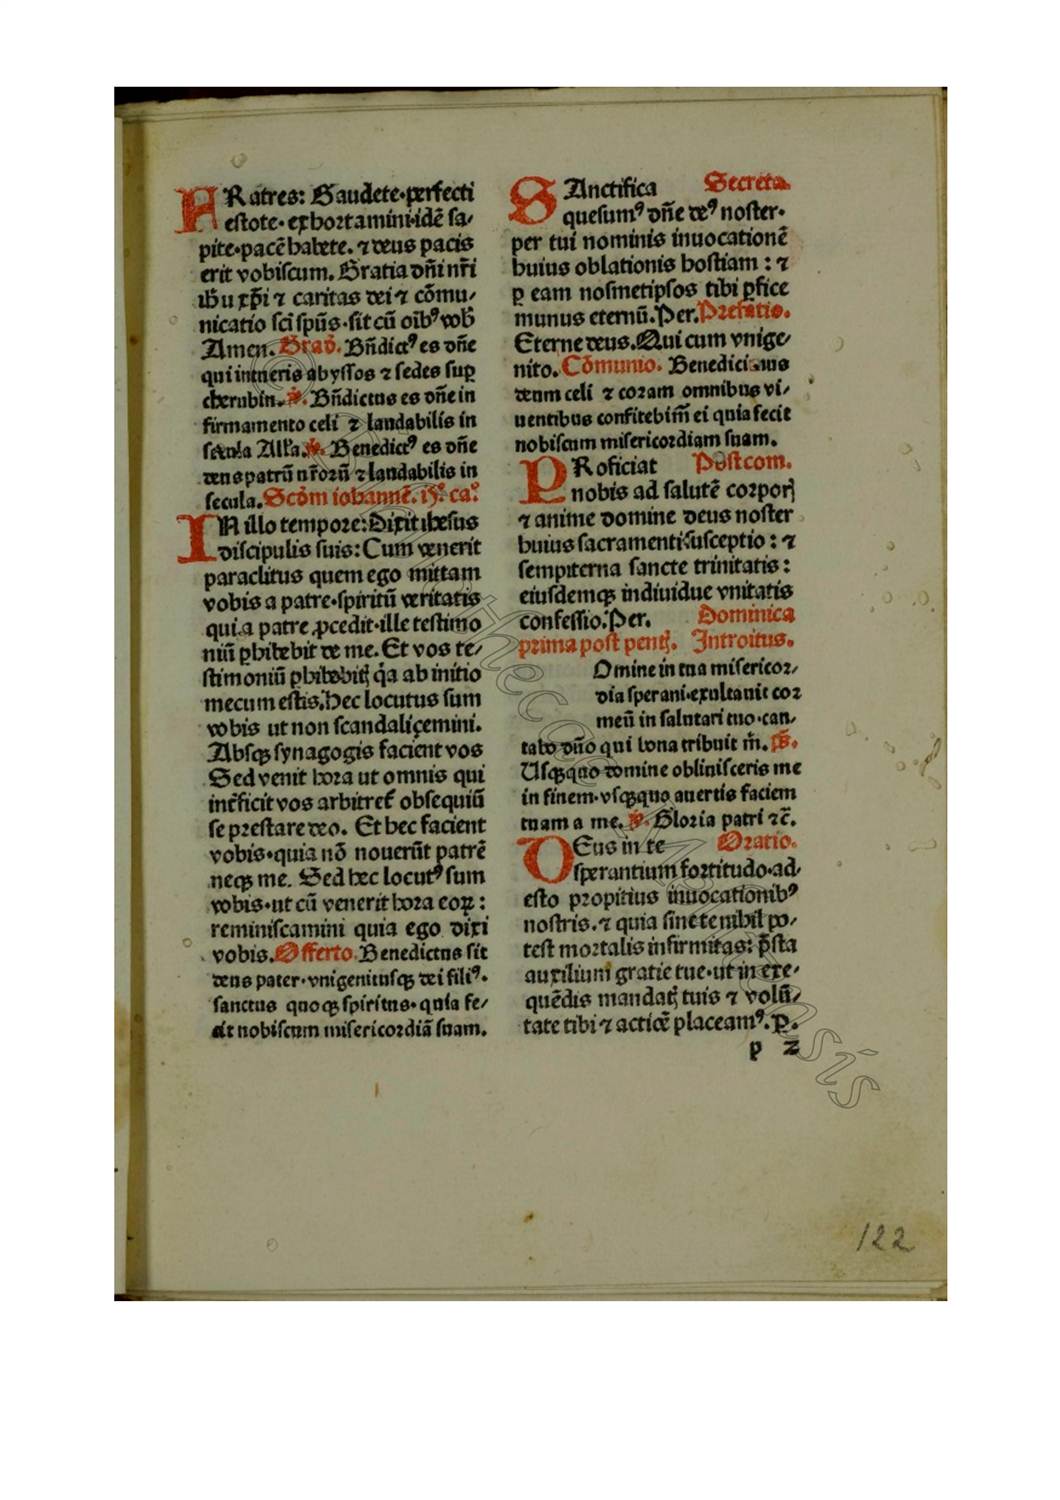 FRatres: Gaudete·perfecti
estote·exhortamini·idē sa-
pite·pacē habete.⁊ deus pacis
erit vobiscum. Gratia dn̄i nr̄i
ihū xp̄i ⁊ caritas dei ⁊ cōmu-
nicatio sc̄i sp̄us·sit cū oīb⁹ vob̄
Amen. Grad̄. Bn̄dict⁹ es dn̄e
qui intueris abyssos ⁊ sedes sup̱
cherubin. ℣. Bn̄dictus es dn̄e in
firmamento celi ⁊ laudabilis in
secula All̄a. ℣. Benedict⁹ es dn̄e
deus patrū nr̄orū ⁊ laudabilis in
secula. Scd̄m iohannē. 15.° ca.°
IN illo tempore: Dixit ihesus
discipulis suis: Cum venerit
paraclitus quem ego mittam
vobis a patre·spiritū veritatis
qui a patre ꝓcedit·ille testimo
niū ꝑhibebit de me. Et vos te-
stimoniū ꝑhibebitꝭ q̄a ab initio
mecum estis. Hec locutus sum
vobis ut non scandaliçemini.
Absqꝫ synagogis facient vos
Sed venit hora ut omnis qui
inter̄ficit vos arbitret̄ obsequiū
se prestare deo. Et hec facient
vobis·quia nō nouerūt patrē
neqꝫ me. Sed hec locut⁹ sum
vobis·ut cū venerit hora eoꝝ:
reminiscamini quia ego dixi
vobis. Offerto. Benedictus sit
deus pater·vnigenitusqꝫ dei fili⁹.
sanctus quoqꝫ spiritus·quia fe-
cit nobiscum misericordiā suam.
SAnctifica Secreta.
quesum⁹ dn̄e de⁹ noster·
per tui nominis inuocationē
huius oblationis hostiam: ⁊
ꝑ eam nosmetipsos tibi ꝑfice
munus eternū. Per. Prefatio.
Eterne deus. Qui cum vnige-
nito. Cōmunio. Benedicimus
deum celi ⁊ coram omnibus vi-
uentibus confitebim̄ ei quia fecit
nobiscum misericordiam suam.
PRoficiat Postcom.
nobis ad salutē corporꝭ
⁊ anime domine deus noster
huius sacramenti susceptio: ⁊
sempiterna sancte trinitatis:
eiusdemqꝫ indiuidue vnitatis
confessio. Per. Dominica
prima post pentꝭ. Introitus.
Omine in tua misericor-
dia speraui·exultauit cor
meū in salutari tuo·can-
tabo dn̄o qui bona tribuit m̄. ps̄.
Usqꝫquo domine obliuisceris me
in finem·vsqꝫquo auertis faciem
tuam a me. ℣. Gloria patri ⁊c̄.
DEus in te Oratio.
sperantium fortitudo·ad-
esto propitius inuocationib⁹
nostris.⁊ quia sine te nihil po-
test mortalis infirmitas: p̄sta
auxilium gratie tue·ut in exe-
quēdis mandatꝭ tuis ⁊ volū-
tate tibi ⁊ actiōe placeam⁹. P.
p 2
122